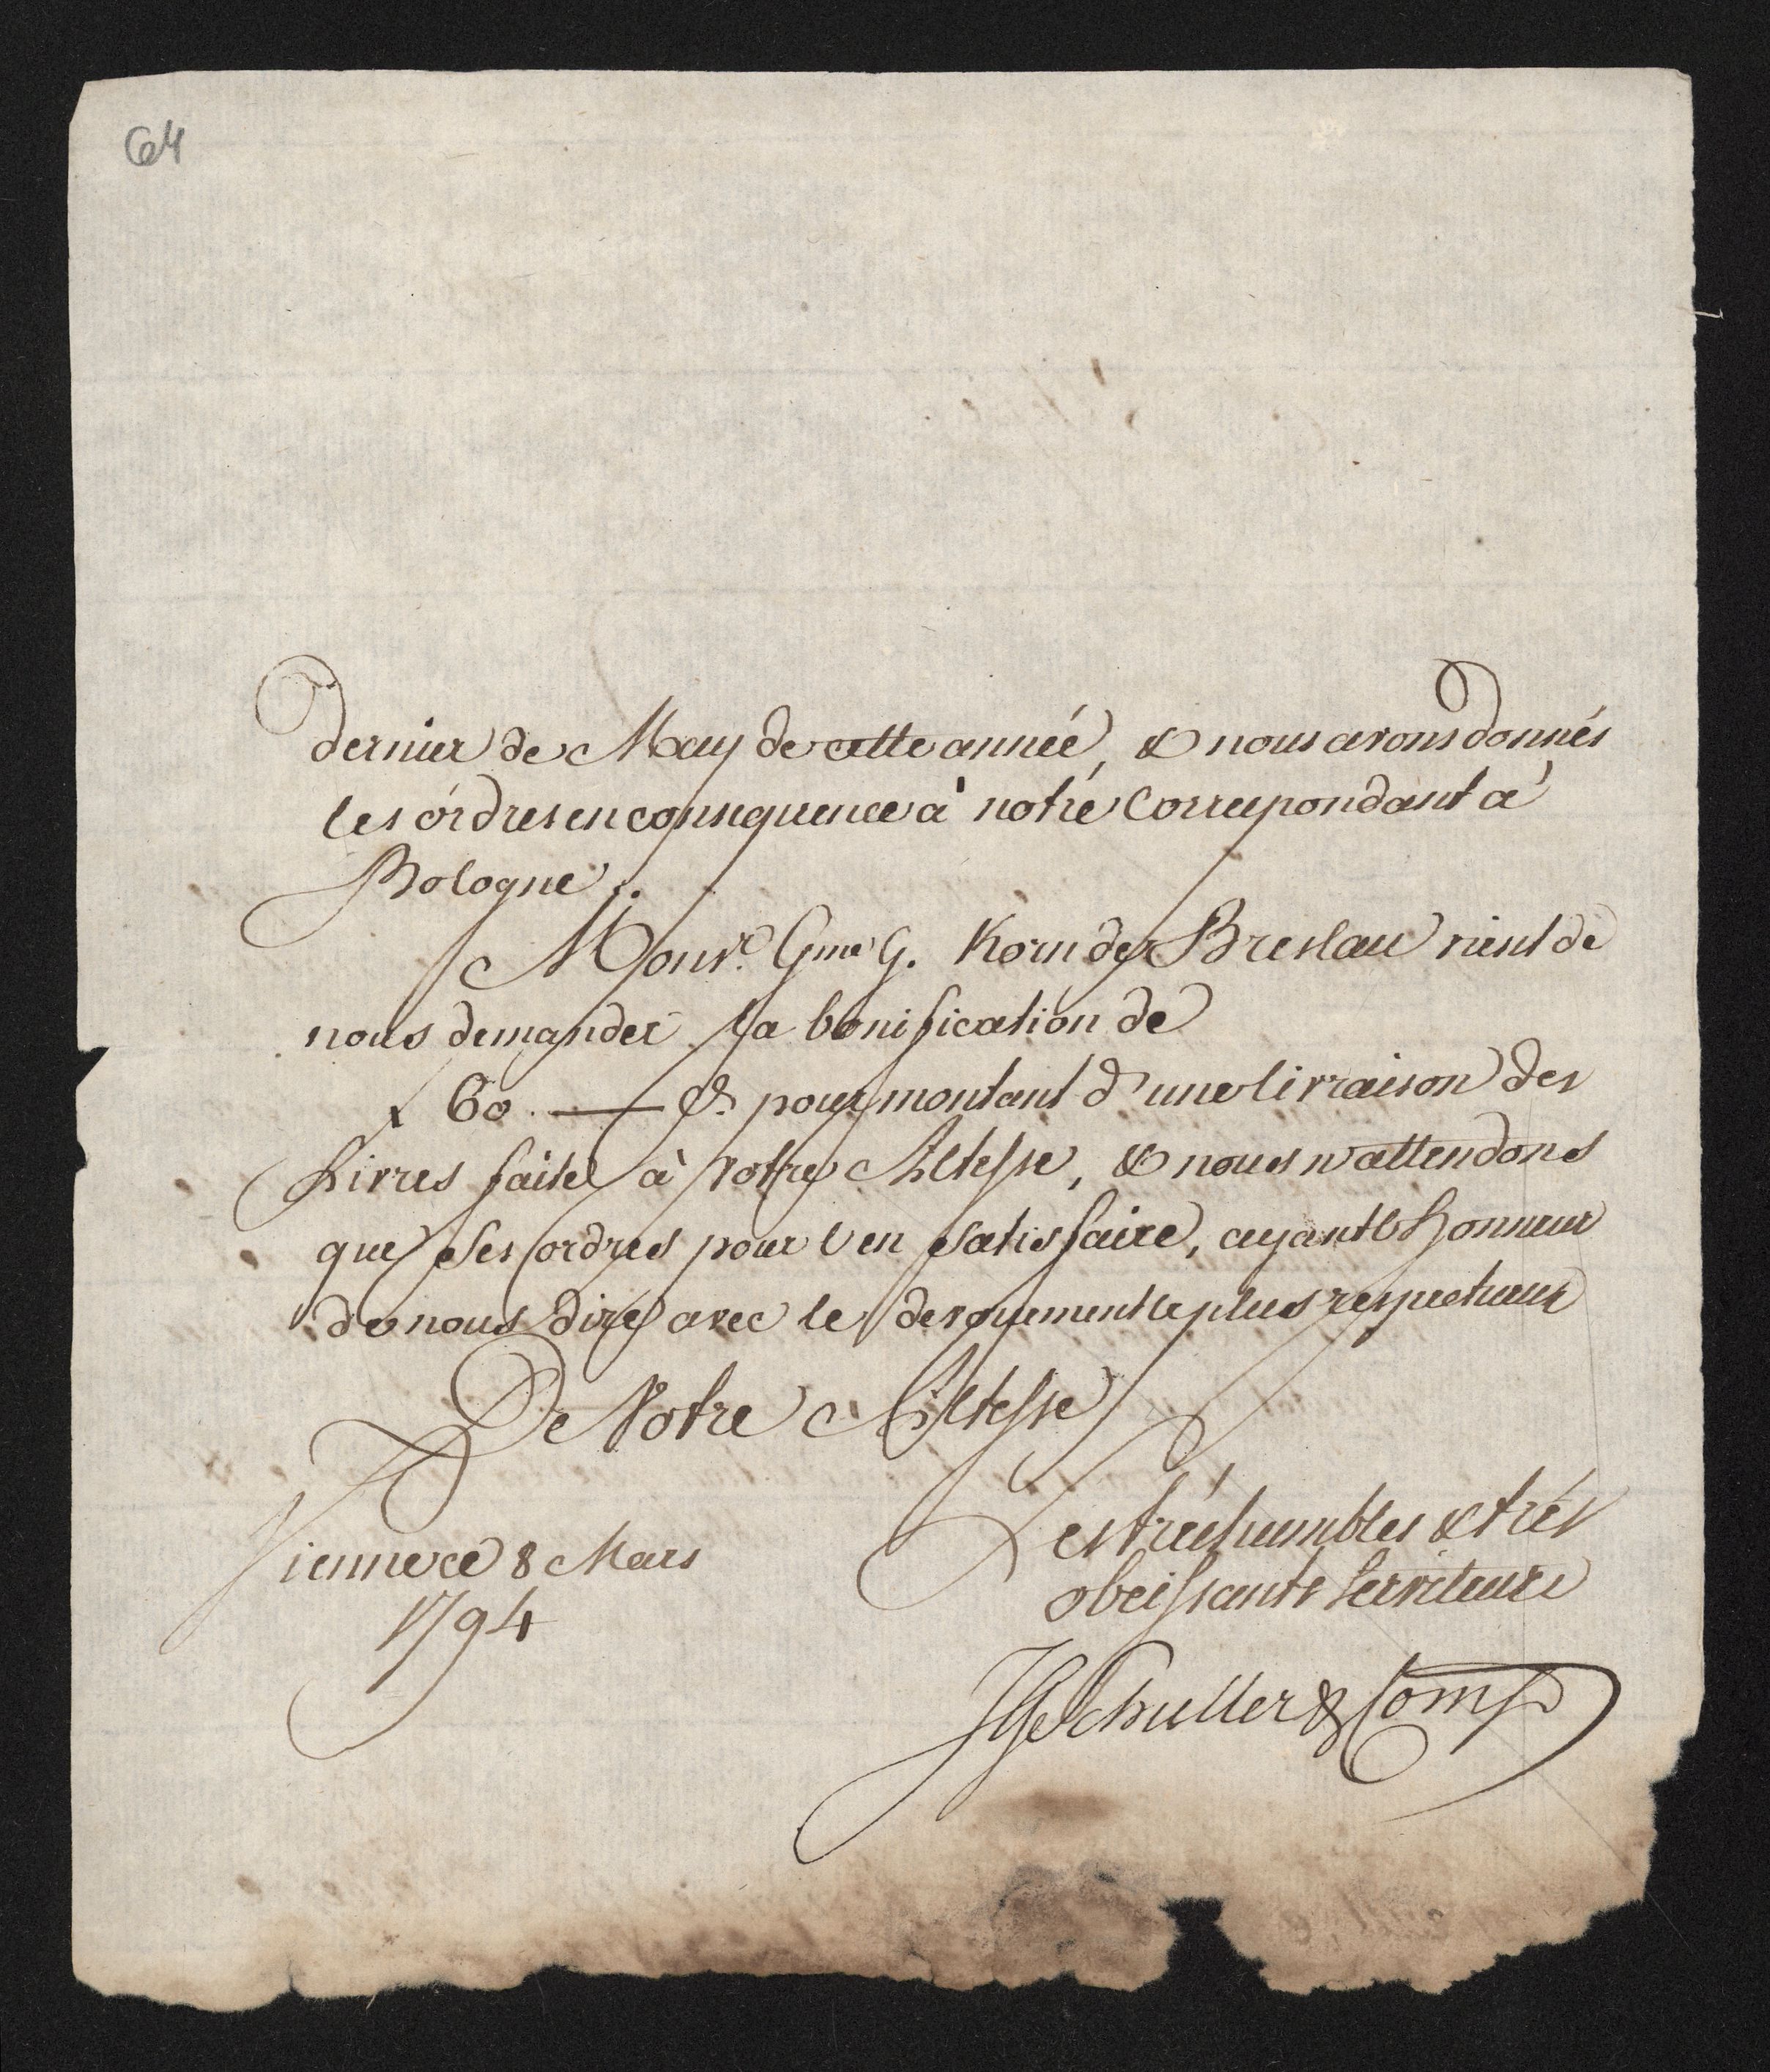 64
dernier de May de cette année, & nous avons donnés
les órdres en consequence à notre Correspondant à
Bologne.
Monsr. Gme G. Korn de Breslau vient de
nous demander la bonification de
60. — pour montant d'une livraison des
Livres faite à Votre Altesse, & nous n'attendons
que Ses ordres pour l'en satisfaire, ayant l'honneur
de nous dire avec le devouement le plus respectueux
De Votre Altesse
Vienne ce 8 Mars
1794
Les tres humbles & trés
obeissants Serviteurs
Schuller & Comp